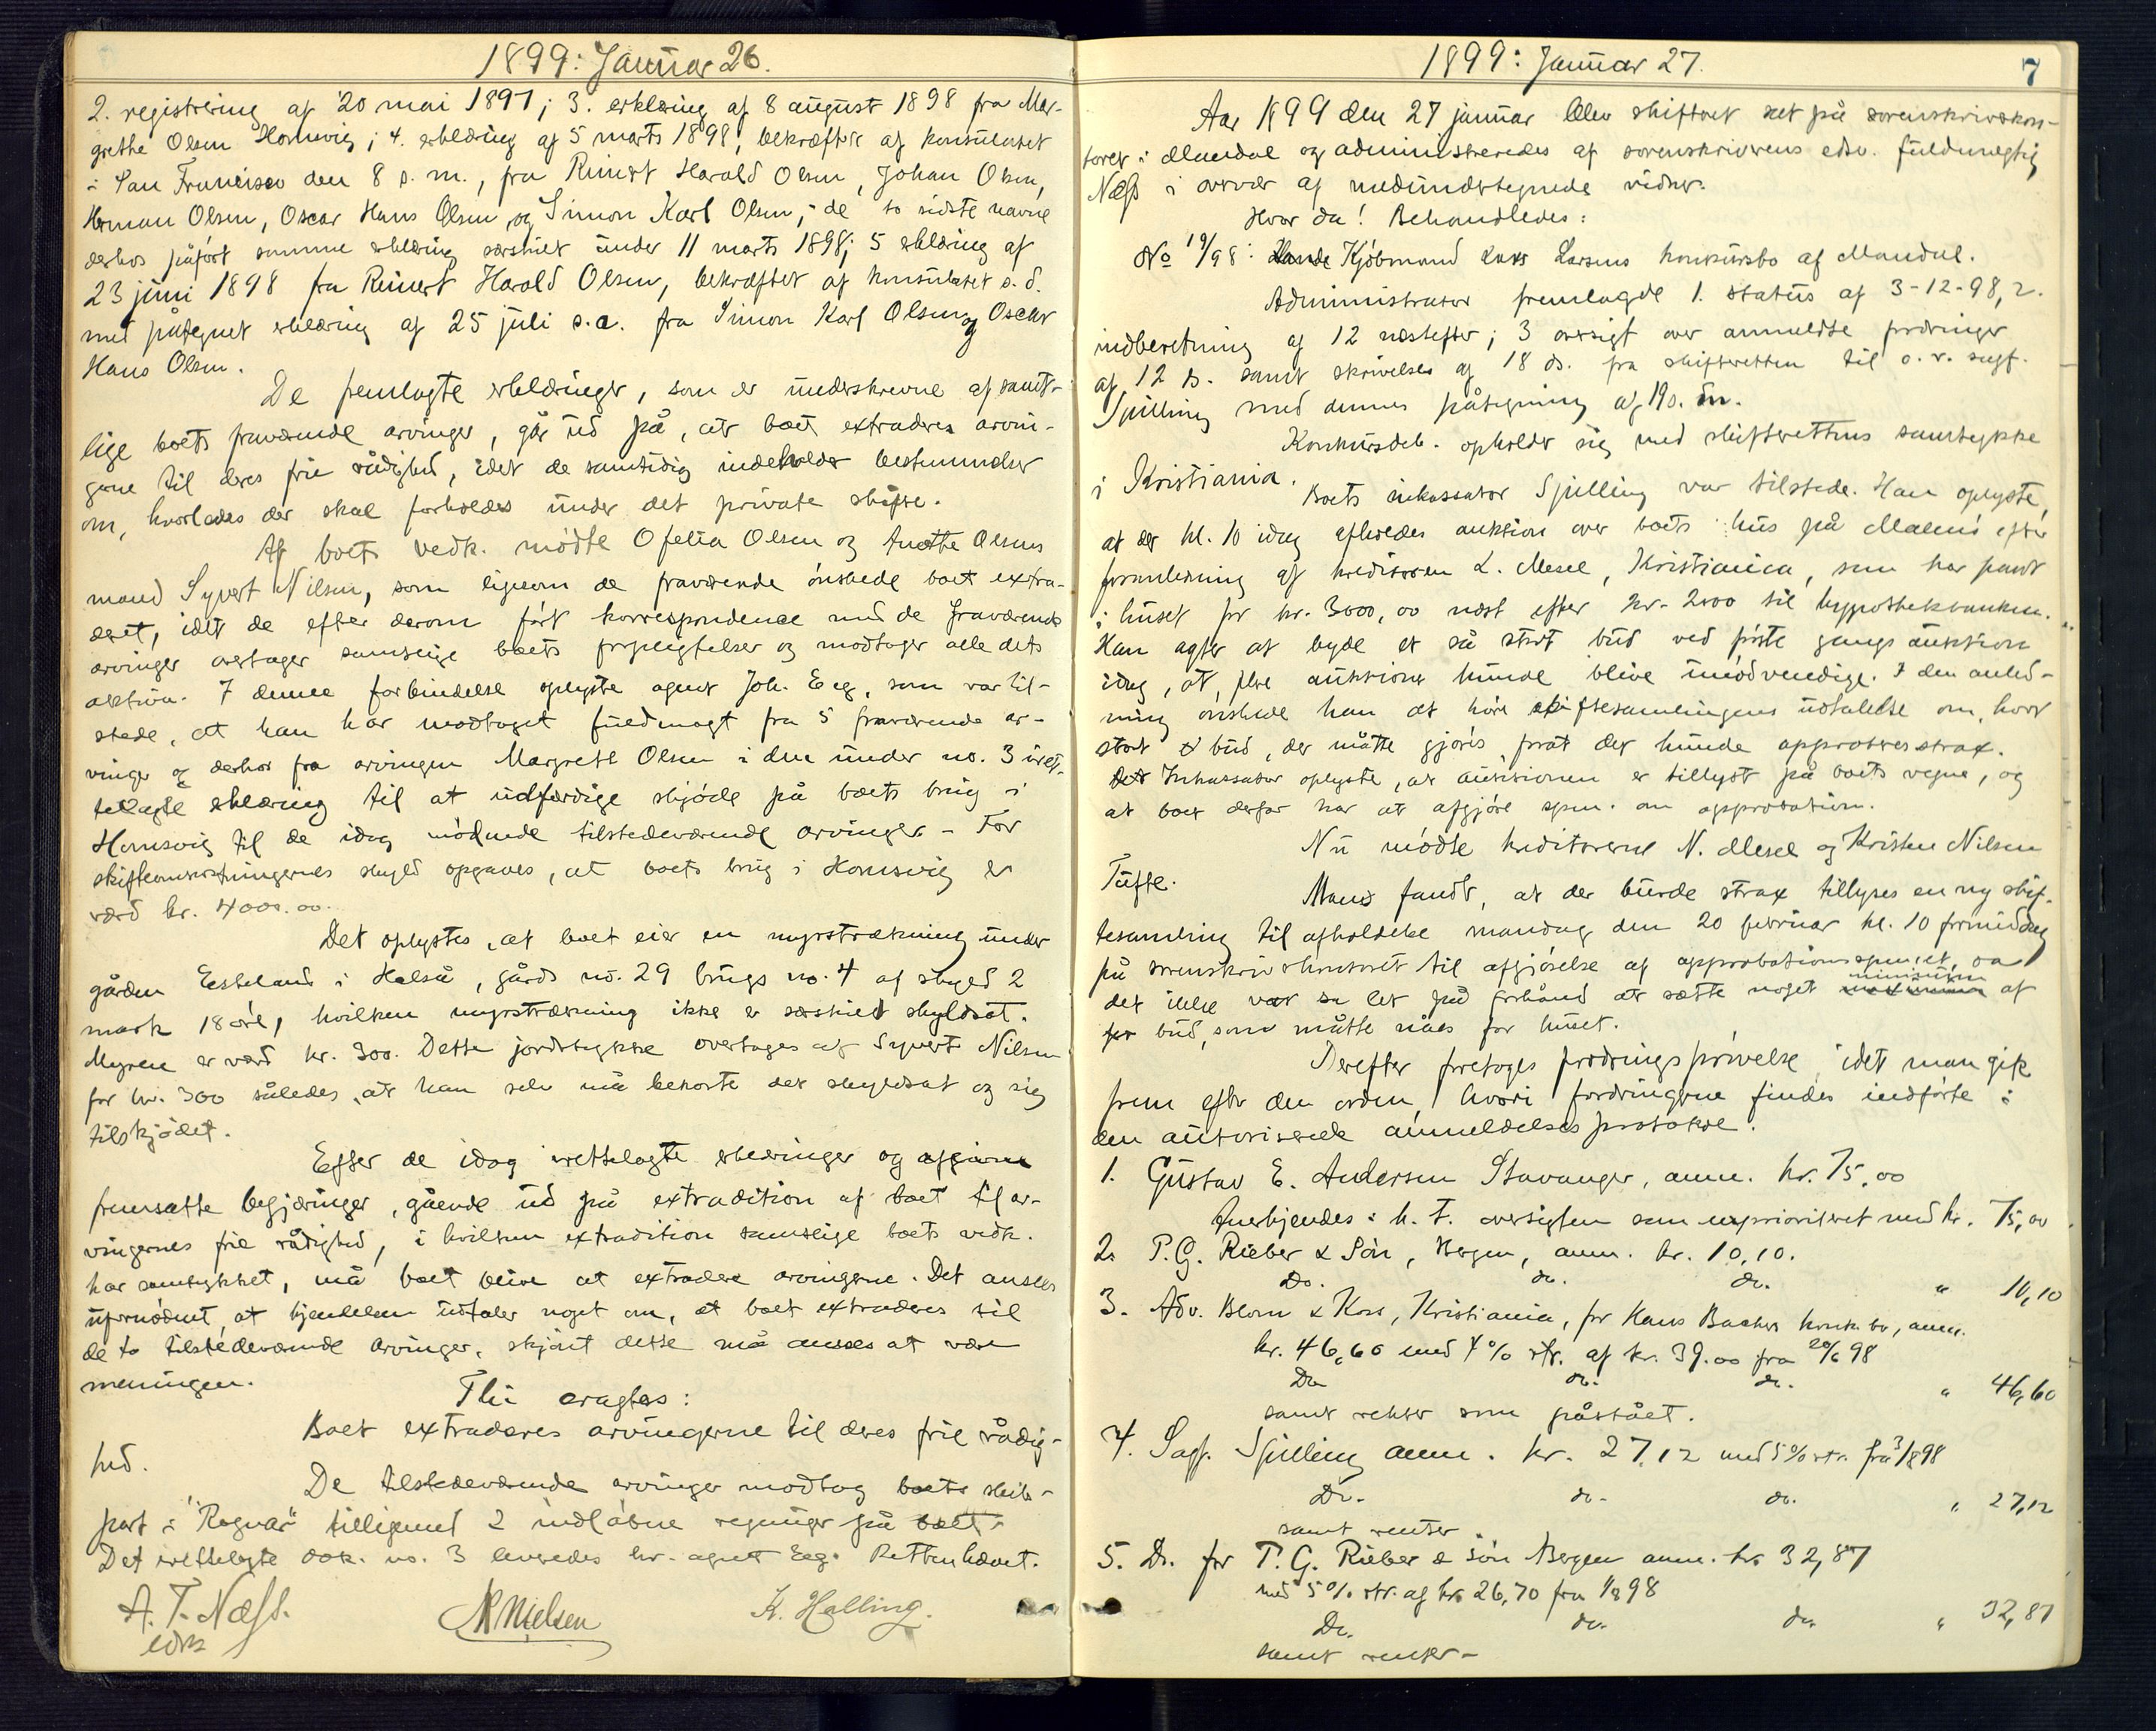 1899: Januar 26.
2. registrering af 20 mai 1897; 3. erklæring af 8 august 1898 fra Mar-
grethe Olsen Homsvig; 4. erklæring af 5 marts 1898, bekræftet af konsulatet
i San Francisco den 8 s. m., fra Reinert Harald Olsen, Johan Olsen,
Herman Olsen, Oscar Hans Olsen og Simon Karl Olsen, - de to sidste navne
derhos påført samme erklæring særskilt under 11 marts 1898; 5 erklæring af
23 juni 1898 fra Reinert Harold Olsen, bekræftet af konsulatet s. d.
med påtegnet erklæring af 25 juli s. a. fra Simon Karl Olsen og Oscar
Hans Olsen.
De fremlagte erklæringer, som er underskrevne af samt-
lige boets fraværende arvinger, går ud på, at boet extraderes arvin-
gerne til deres frie rådighed, idet de samtidig indeholder bestemmelser
om, hvorledes der skal forholdes under det private skifte.
Af boets vedk. mødte Ofelia Olsen og Anette Olsens
mand Syvert Nilsen, som ligesom de fraværende ønskede boet extra-
deret, idet de efter derom ført korrespondence med de fraværende
arvinger overtager samtlige boets forpligtelser og modtager alle dets
aktiva. I denne forbindelse oplyste agent Joh. Eeg, som var til-
stede, at han har modtaget fuldmagt fra 5 fraværende ar-
vinger og derhos fra arvingen Margrete Olsen i den under no. 3 iret-
telagte erklæring til at udfærdige skjøde på boets brug i
Homsvig til de idag mødende tilstedeværende arvinger. - For
skifteomkostningernes skyld opgaves, at boets brug i Homsvig er
værd kr. 4000.00.
Det oplystes, at boet eier en myrstrækning under
gården Eskeland i Halså, gårds no. 29 brugs no. 4 af skyld 2
mark 18 øre, hvilken myrstrækning ikke er særskilt skyldsat.
Myren er værd kr. 300. Dette jordstykke overtages af Syvert Nilsen
for kr. 300 således, at han selv må bekoste det skyldsat og sig
tilskjødet.
Efter de idag irettelagte erklæringer og afgivne
fremsatte begjæringer, gående ud på extradition af boet til ar-
vingernes frie rådighed, i hvilken extradition samtlige boets vedk.
har samtykket, må boet blive at extradere arvingerne. Det ansees
ufornødent, at kjendelsen udtaler noget om, at boet extraderes til
de to tilstedeværende arvinger, skjønt dette må ansees at være
meningen.
Thi eragtes:
Boet extraderes arvingerne til deres frie rådig-
hed.
De tilstedeværende arvinger modtog boets skibs-
part i "Ragnar" tilligemed 2 indløbne regninger på boet.
Det irettelagte dok. no. 3 leveredes hr. agent Eeg. Retten hævet.
A. T. Næss.
edsv
N Nielsen
K. Halling.
1899: Januar 27.
7
Aar 1899 den 27 januar blev skifteret sat på sorenskriverkon-
toret i Mandal og administreredes af sorenskriverens edsv. fuldmægtig
Næss i overvær af medundertegnede vidner.
Hvor da! Behandledes:
No 19/98: Kjøbmand Lars Larsens konkursbo af Mandal.
Administrator fremlagde 1. status af 3-12-98, 2.
indberetning af 12 næstefter; 3 oversigt over anmeldte fordringer
af 12 ds. samt skrivelse af 18 ds. fra skifteretten til o. r. sagf.
Spilling med dennes påtegning af 19 s. m.
Konkursdeb. opholder sig med skifterettens samtykke
i Kristiania.
Boets inkassator Spilling var tilstede. Han oplyste,
at der kl. 10 idag afholdes auktion over boets hus på Malmø efter
foranledning af kreditoren L. Mesel, Kristiania, som har pant
i huset for kr. 3000,00 næst efter kr. 2000 til hypothekbanken.
Han agter at byde et så stort bud ved første gangs auktion
idag, at flere auktioner kunde blive unødvendige. I den anled-
ning ønskede han at høre skiftesamlingens udtalelse om, hvor
stort et bud, der måtte gjøres, for at det kunde approberes strax.
Inkassator oplyste, at auktionen er tillyst på boets vegne, og
at boet derfor har at afgjøre spm. om approbation.
Nu mødte kreditorerne N. Mesel og Kristen Nilsen
Tufte.
Man fandt, at der burde strax tillyses en ny skif-
tesamling til afholdelse mandag den 20 februar kl. 10 formiddag
på sorenskriverkontoret til afgjørelse af approbationsspm.et, da
det ikke var let på forhånd at sætte noget minimum af
bud, som måtte nåes for huset.
Derefter foretoges fordringsprøvelse, idet man gik
frem efter den orden, hvori fordringerne findes indførte i
den autoriserede anmeldelsesprotokol.
1. Gustav E. Andersen Stavanger, anm. kr. 75,00
Anerkjendes i h. t. oversigten som uprioriteret med kr. 75,00
2. P. G. Rieber & Søn, Bergen, anm. kr. 10,10.
Do. do. do. " 10,10
3. Adv. Blom & Koss, Kristiania, for Hans Bachers konk.bo, anm.
kr. 46,60 med 4% rtr. af kr. 39.00 fra 20/6 98
Do do. do. " 46,60
samt renter som påstået.
4. Sagf. Spilling anm. kr. 27,12 med 5% rtr. fra 3/8 98
Do. do. do. " 27,12
samt renter
5. Do. for P. G. Rieber & Søn Bergen anm. kr. 32,87
med 5% rtr. af kr. 26,70 fra 1/8 98
Do. do. do. " 32,87
samt renter -